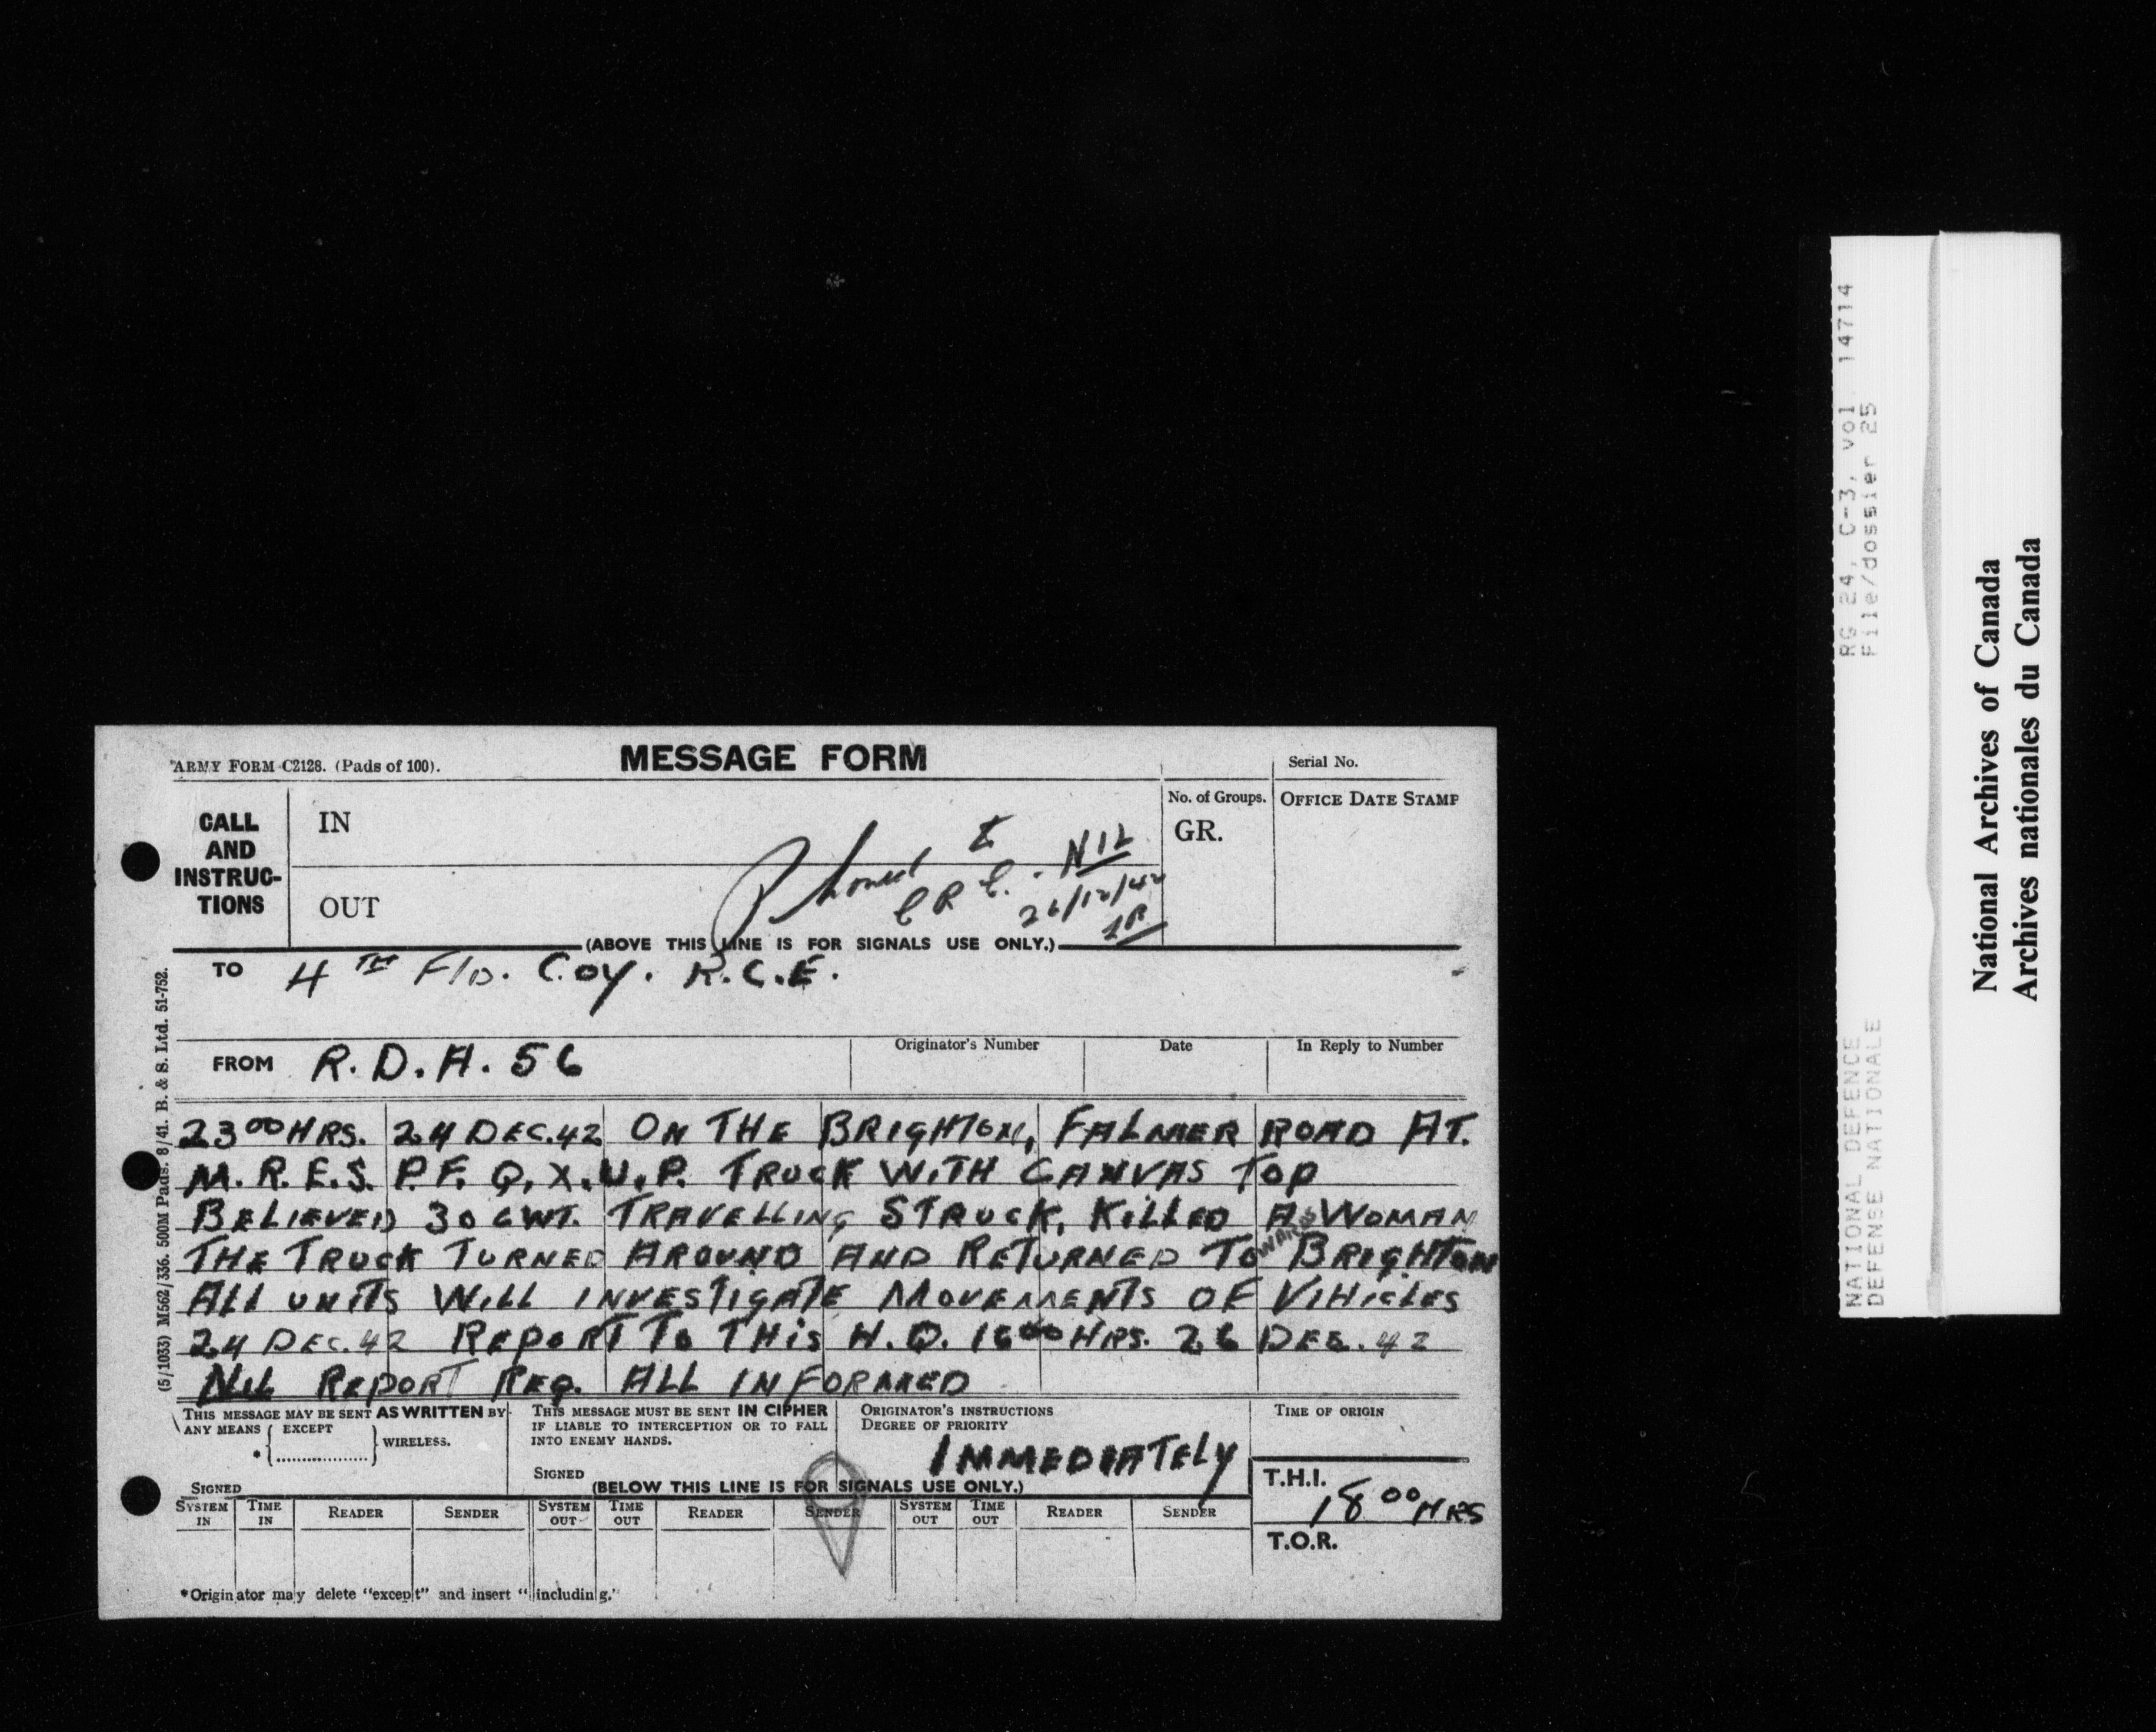 ARMY FORM C2128. (Pads of 100).
MESSAGE FORM
Serial No.
CALL
AND
INSTRUC-
TIONS
IN
OUT
No. of Groups.
GR.
OFFICE DATE STAMP
Phoned to NIL
C R E.
26/12/42
(ABOVE THIS LINE IS FOR SIGNALS USE ONLY.)
TO 4TH FLD. COY. R.C.E.
FROM R.D.A. 56
Originator's Number
Date
In Reply to Number
2300 HRS. 24 DEC.42 ON THE BRIGHTON, FALMER ROAD AT.
M.R.E.S. P.F. Q.X.U.P. TRUCK WITH CANVAS TOP
BELIEVED 30 CWT. TRAVELLING STRUCK, KILLED A WOMAN
THE TRUCK TURNED AROUND AND RETURNED TOWARDS BRIGHTON
ALL UNITS WILL INVESTIGATE MOVEMENTS OF VIHICLES
24 DEC.42 REPORT TO THIS H.Q. 1600 HRS. 26 DEC. 42
NIL REPORT REQ. ALL INFORMED
THIS MESSAGE MAY BE SENT AS WRITTEN BY
ANY MEANS { EXCEPT
* { .................. } WIRELESS.
SIGNED
THIS MESSAGE MUST BE SENT IN CIPHER
IF LIABLE TO INTERCEPTION OR TO FALL
INTO ENEMY HANDS.
SIGNED
ORIGINATOR'S INSTRUCTIONS
DEGREE OF PRIORITY
IMMEDIATELY
TIME OF ORIGIN
(BELOW THIS LINE IS FOR SIGNALS USE ONLY.)
T.H.I.
1800 HRS
T.O.R.
SYSTEM IN
TIME IN
READER
SENDER
SYSTEM OUT
TIME OUT
READER
SENDER
SYSTEM OUT
TIME OUT
READER
SENDER
*Originator may delete "except" and insert "including."
(5/1033) M562/336. 500M Pads. 8/41. B. & S. Ltd. 51-752.
RG 24, C-3, vol 14714
File/dossier 25
NATIONAL DEFENCE
DEFENSE NATIONALE
National Archives of Canada
Archives nationales du Canada